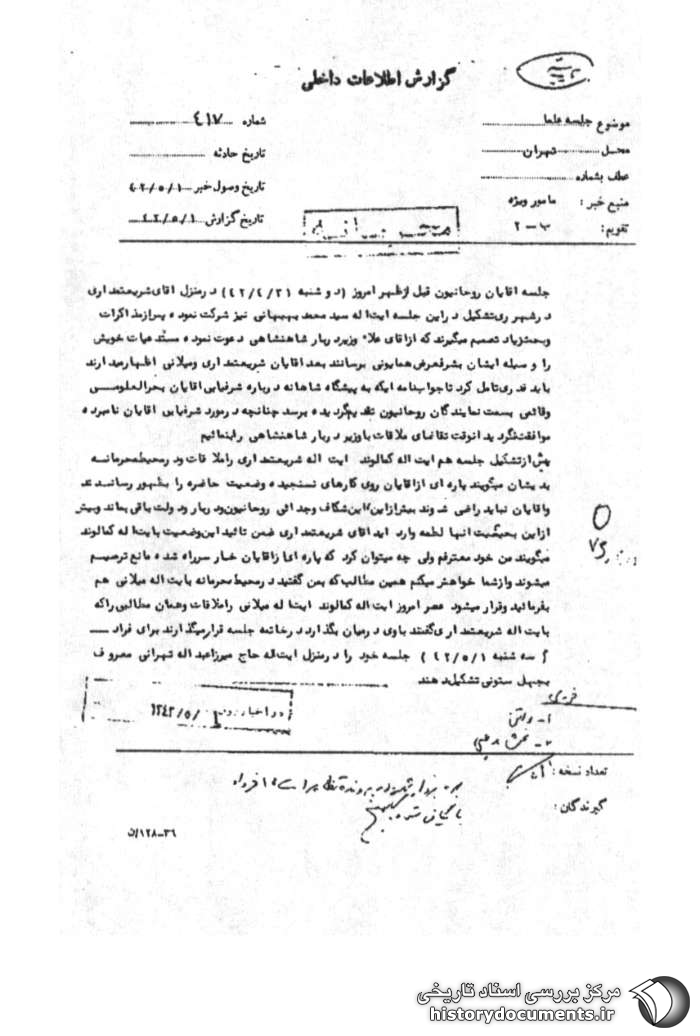 گزارش اطلاعات داخلی
موضوع جلسه علما
شماره ٤١٧
محل تهران
تاریخ حادثه
عطف بشماره
تاریخ وصول خبر ٤٢/٥/١
منبع خبر : مامور ویژه
تاریخ گزارش ٤٢/٥/١
تقویم: ب-٢
محرمانه
جلسه اقایان روحانیون قبل ازظهر امروز (دو شنبه ٤٢/٤/٣١) در منزل اقای شریعتمداری
در شهر ری تشکیل در این جلسه ایت اله سید محمد بهبهانی نیز شرکت نموده پس از مذاکرات
و بحث زیاد تصمیم میگیرند که از اقای علاء وزیر دربار شاهنشاهی دعوت نموده مستدعیات خویش
را وسیله ایشان بشرفعرض همایونی برسانند بعد اقایان شریعتمداری ومیلانی اظهار میدارند
باید قدری تامل کرد تا جواب نامه ایکه به پیشگاه شاهانه درباره شرفیابی اقایان بحرالعلومی
وقائمی بسمت نمایندگان روحانیون تقدیم گردیده برسد چنانچه در مورد شرفیابی اقایان نامبرده
موافقت نگردید انوقت تقاضای ملاقات با وزیر دربار شاهنشاهی را بنمائیم
پیش از تشکیل جلسه هم ایت اله کمالوند ایت اله شریعتمداری را ملاقات ودر محیط محرمانه
بدیشان میگویند پاره ای از اقایان روی کارهای نسنجیده وضعیت حاضره را بظهور رسانده اند
واقایان نباید راضی شوند بیش از این این شکاف وجدائی روحانیون ودربار ودولت باقی بماند وبیش
از این بحیثیت انها لطمه وارد اید اقای شریعتمداری ضمن تائید این وضعیت بایت اله کمالوند
میگویند من خود معترفم ولی چه میتوان کرد که پاره ای از اقایان خار سر راه شده مانع ترمیم
میشوند و از شما خواهش میکنم همین مطالب که بمن گفتید در محیط محرمانه بایت اله میلانی هم
بفرمائید وقرار میشود عصر امروز ایت اله کمالوند ایت اله میلانی را ملاقات وهمان مطالبی را که
بایت اله شریعتمداری گفتند با وی در میان بگذارد در خاتمه جلسه قرار میگذارند برای فردا
(سه شنبه ٤٢/٥/١) جلسه خود را در منزل ایت اله حاج میرزا عبداله تهرانی معروف
بچهل ستونی تشکیل دهند
در اخبار روز ١٣٤٢/٥/١
تعداد نسخه :
گیرندگان :
٣٦-١٢٨/ن
مرکز بررسی اسناد تاریخی
historydocuments.ir